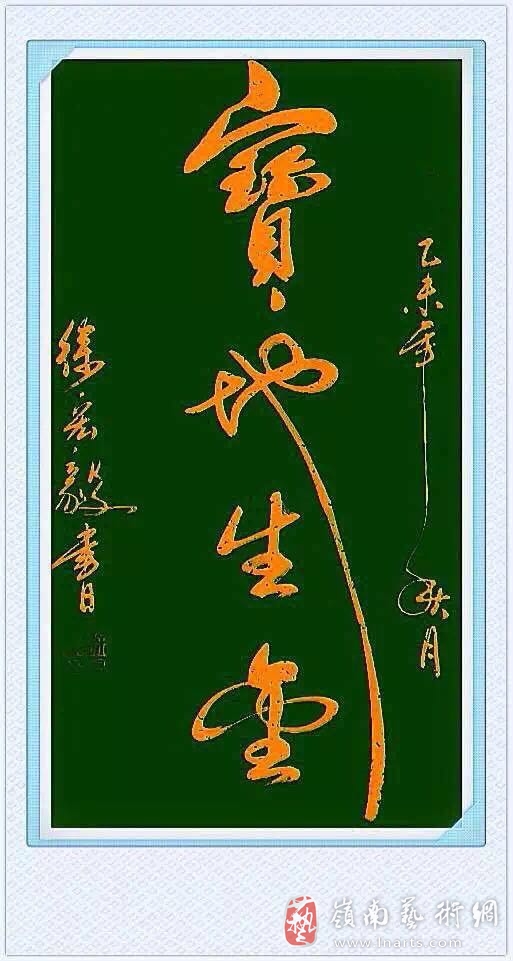 乙未年秋月
寶地生金
徐宏毅書
藝 嶺南藝術網
www.lnarts.com